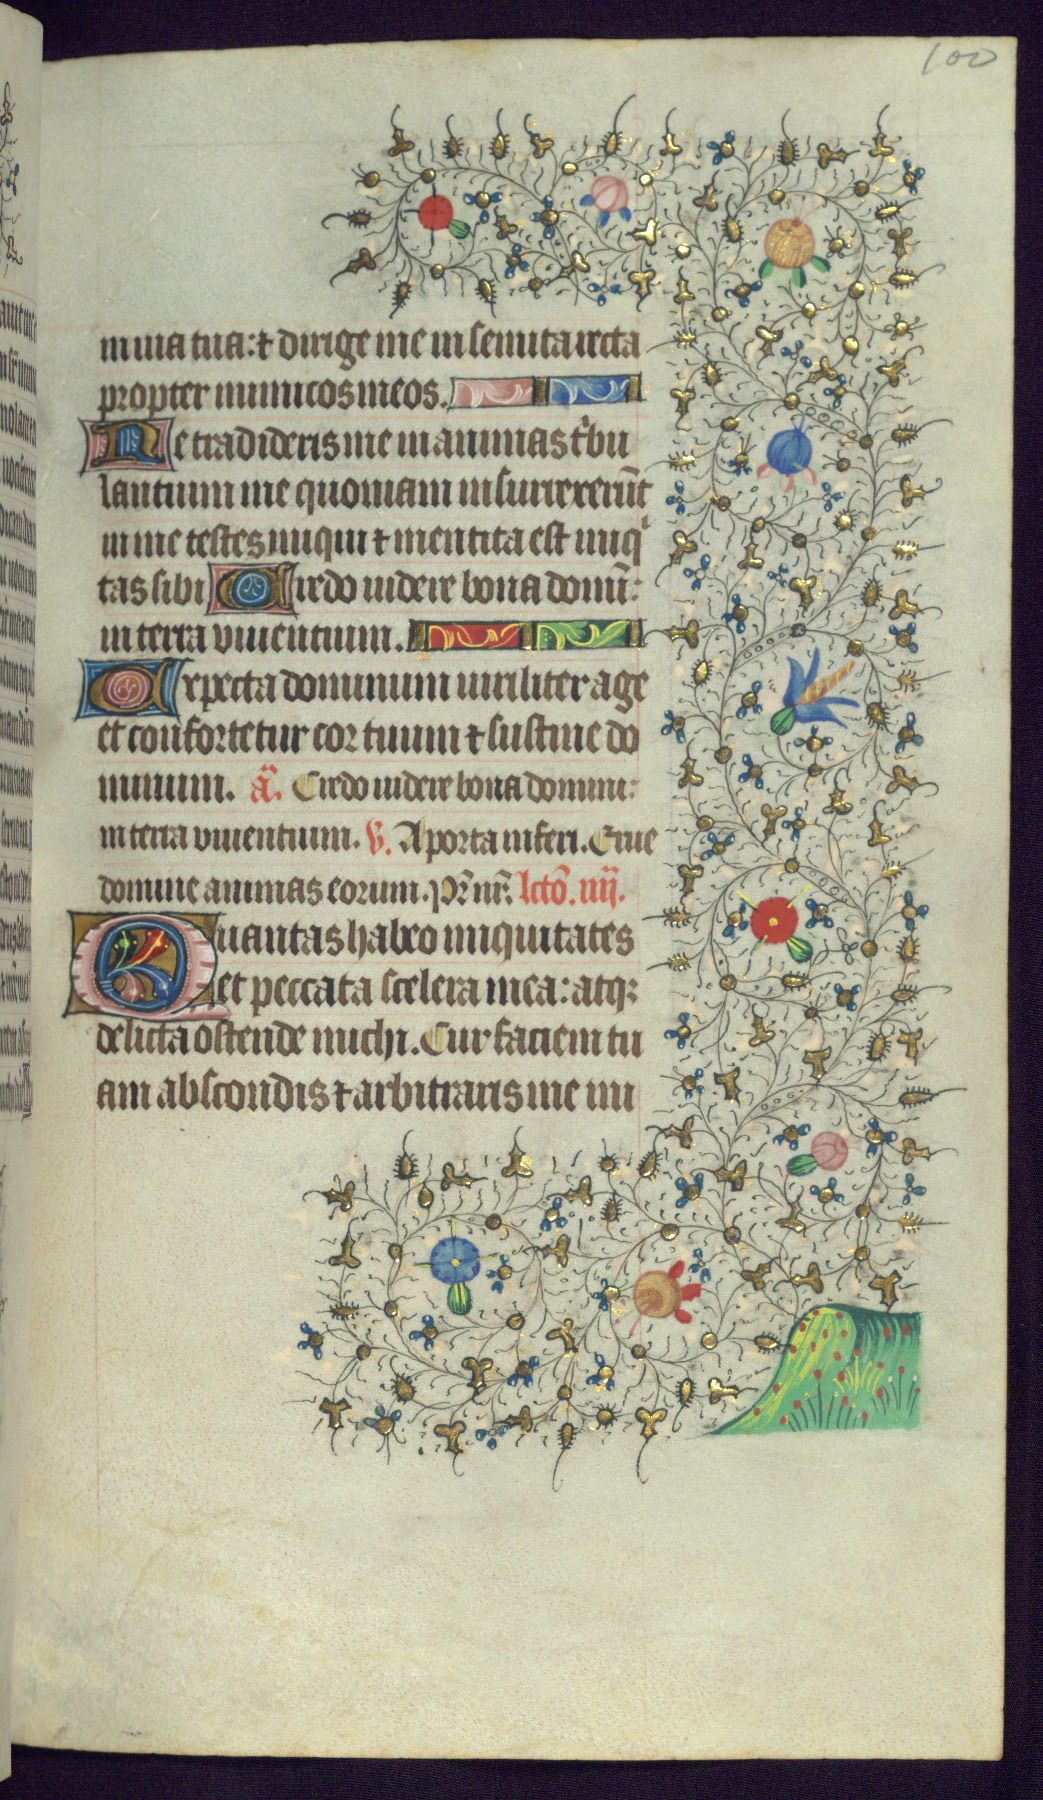 100
in uia tua: ⁊ dirige me in semita recta
propter inimicos meos.
Ne tradideris me in animas t'bu
lantium me quoniam insurrexerūt
in me testes iniqui ⁊ mentita est iniqⁱ
tas sibi Credo uidere bona domī:
in terra viuentium.
Expecta dominum uiriliter age
et confortetur cor tuum ⁊ sustine do
minum. ā. Credo uidere bona domini:
in terra viuentium. v̄. A porta inferi. Erue
domine animas eorum. Pr̄ nr̄. lctō. iiij.
Quantas habeo iniquitates
et peccata scelera mea: atqꝫ
delicta ostende michi. Cur faciem tu
am abscondis ⁊ arbitraris me ini